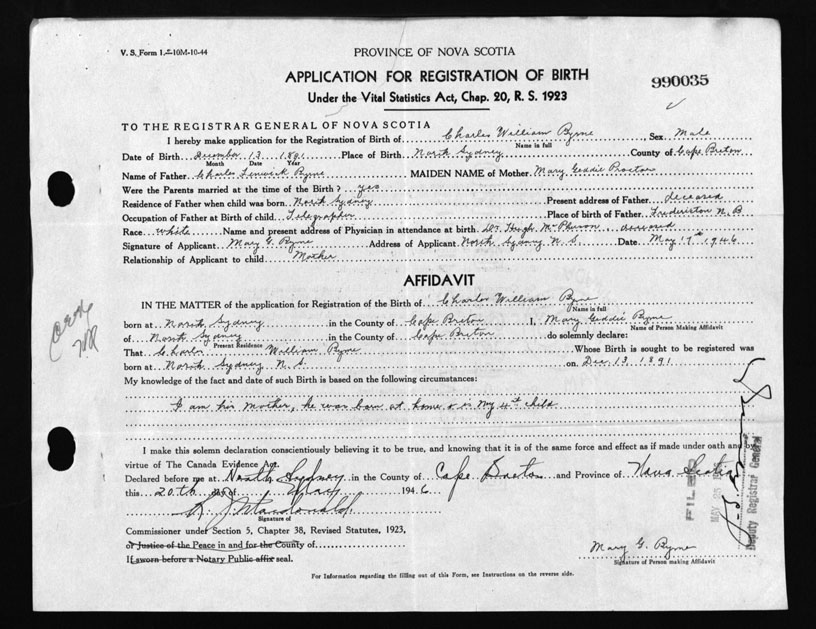 V. S. Form 1.—10M-10-44
PROVINCE OF NOVA SCOTIA
APPLICATION FOR REGISTRATION OF BIRTH
990035
Under the Vital Statistics Act, Chap. 20, R. S. 1923
TO THE REGISTRAR GENERAL OF NOVA SCOTIA
I hereby make application for the Registration of Birth of Charles William Byrne, Sex Male
Name in full
Date of Birth December 13 1891 Place of Birth North Sydney County of Cape Breton
Month Date Year
Name of Father Charles Fenwick Byrne MAIDEN NAME of Mother Mary Geddie Proctor
Were the Parents married at the time of the Birth? yes
Residence of Father when child was born North Sydney Present address of Father deceased
Occupation of Father at Birth of child Telegrapher Place of birth of Father Fredericton N. B
Race white Name and present address of Physician in attendance at birth Dr. Hugh McPherson deceased
Signature of Applicant Mary G. Byrne Address of Applicant North Sydney N. S. Date May 17th 1946
Relationship of Applicant to child Mother
AFFIDAVIT
IN THE MATTER of the application for Registration of the Birth of Charles William Byrne
Name in full
born at North Sydney in the County of Cape Breton I, Mary Geddie Byrne
Name of Person Making Affidavit
of North Sydney in the County of Cape Breton do solemnly declare:
Present Residence
That Charles William Byrne Whose Birth is sought to be registered was
born at North Sydney N. S. on Dec 13 1891
My knowledge of the fact and date of such Birth is based on the following circumstances:
I am his Mother, he was born at home & is my 4th child
I make this solemn declaration conscientiously believing it to be true, and knowing that it is of the same force and effect as if made under oath and by
virtue of The Canada Evidence Act.
Declared before me at North Sydney in the County of Cape Breton and Province of Nova Scotia
this 20th day of May 1946
Signature of
Commissioner under Section 5, Chapter 38, Revised Statutes, 1923,
or Justice of the Peace in and for the County of
If sworn before a Notary Public affix seal.
Mary G. Byrne
Signature of Person making Affidavit
For Information regarding the filling out of this Form, see Instructions on the reverse side.
FILED
Deputy Registrar General